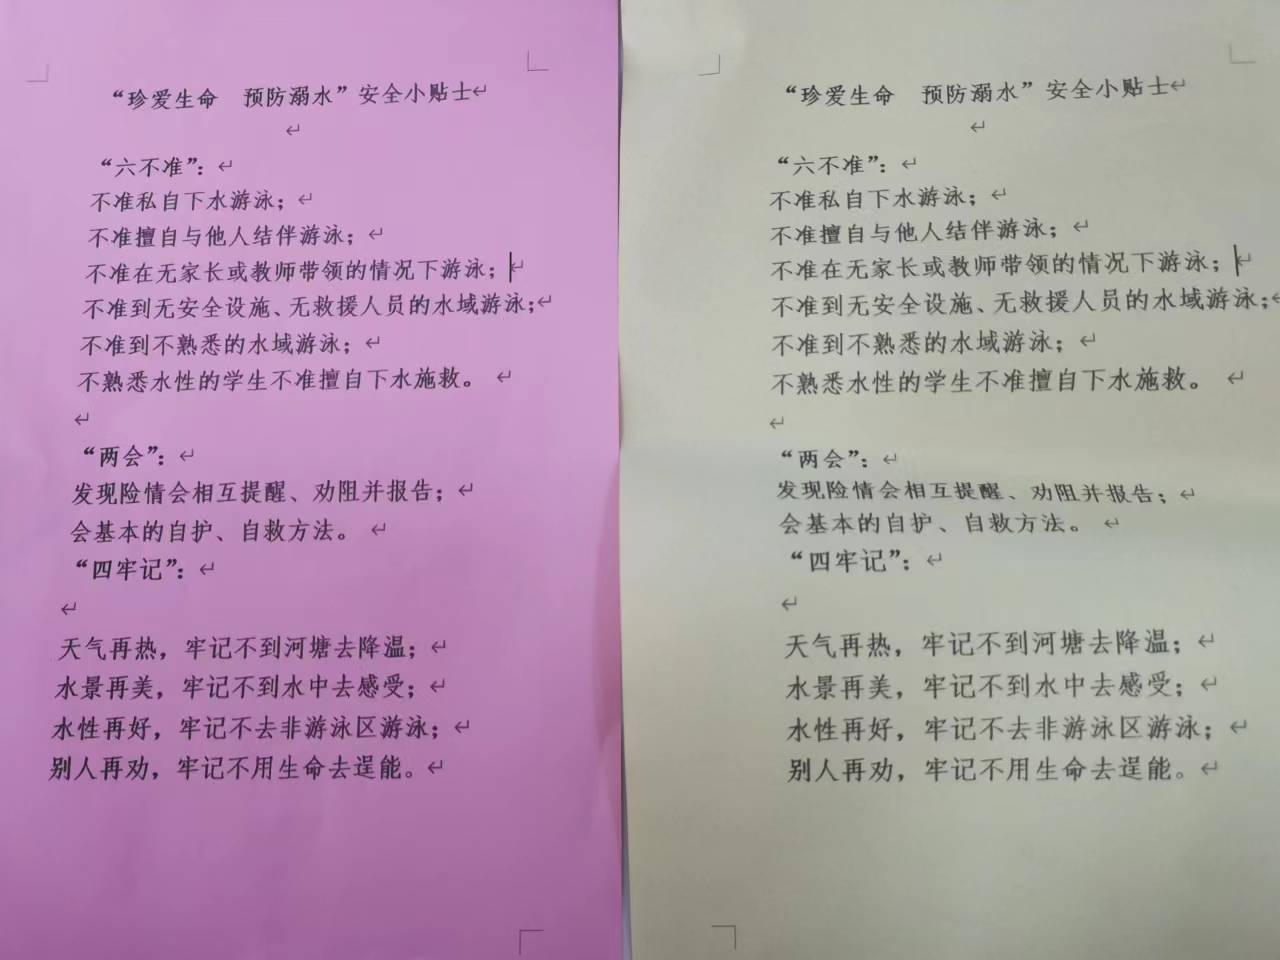 “珍爱生命　预防溺水”安全小贴士
“六不准”：
不准私自下水游泳；
不准擅自与他人结伴游泳；
不准在无家长或教师带领的情况下游泳；
不准到无安全设施、无救援人员的水域游泳；
不准到不熟悉的水域游泳；
不熟悉水性的学生不准擅自下水施救。
“两会”：
发现险情会相互提醒、劝阻并报告；
会基本的自护、自救方法。
“四牢记”：
天气再热，牢记不到河塘去降温；
水景再美，牢记不到水中去感受；
水性再好，牢记不去非游泳区游泳；
别人再劝，牢记不用生命去逞能。
“珍爱生命　预防溺水”安全小贴士
“六不准”：
不准私自下水游泳；
不准擅自与他人结伴游泳；
不准在无家长或教师带领的情况下游泳；
不准到无安全设施、无救援人员的水域游泳；
不准到不熟悉的水域游泳；
不熟悉水性的学生不准擅自下水施救。
“两会”：
发现险情会相互提醒、劝阻并报告；
会基本的自护、自救方法。
“四牢记”：
天气再热，牢记不到河塘去降温；
水景再美，牢记不到水中去感受；
水性再好，牢记不去非游泳区游泳；
别人再劝，牢记不用生命去逞能。